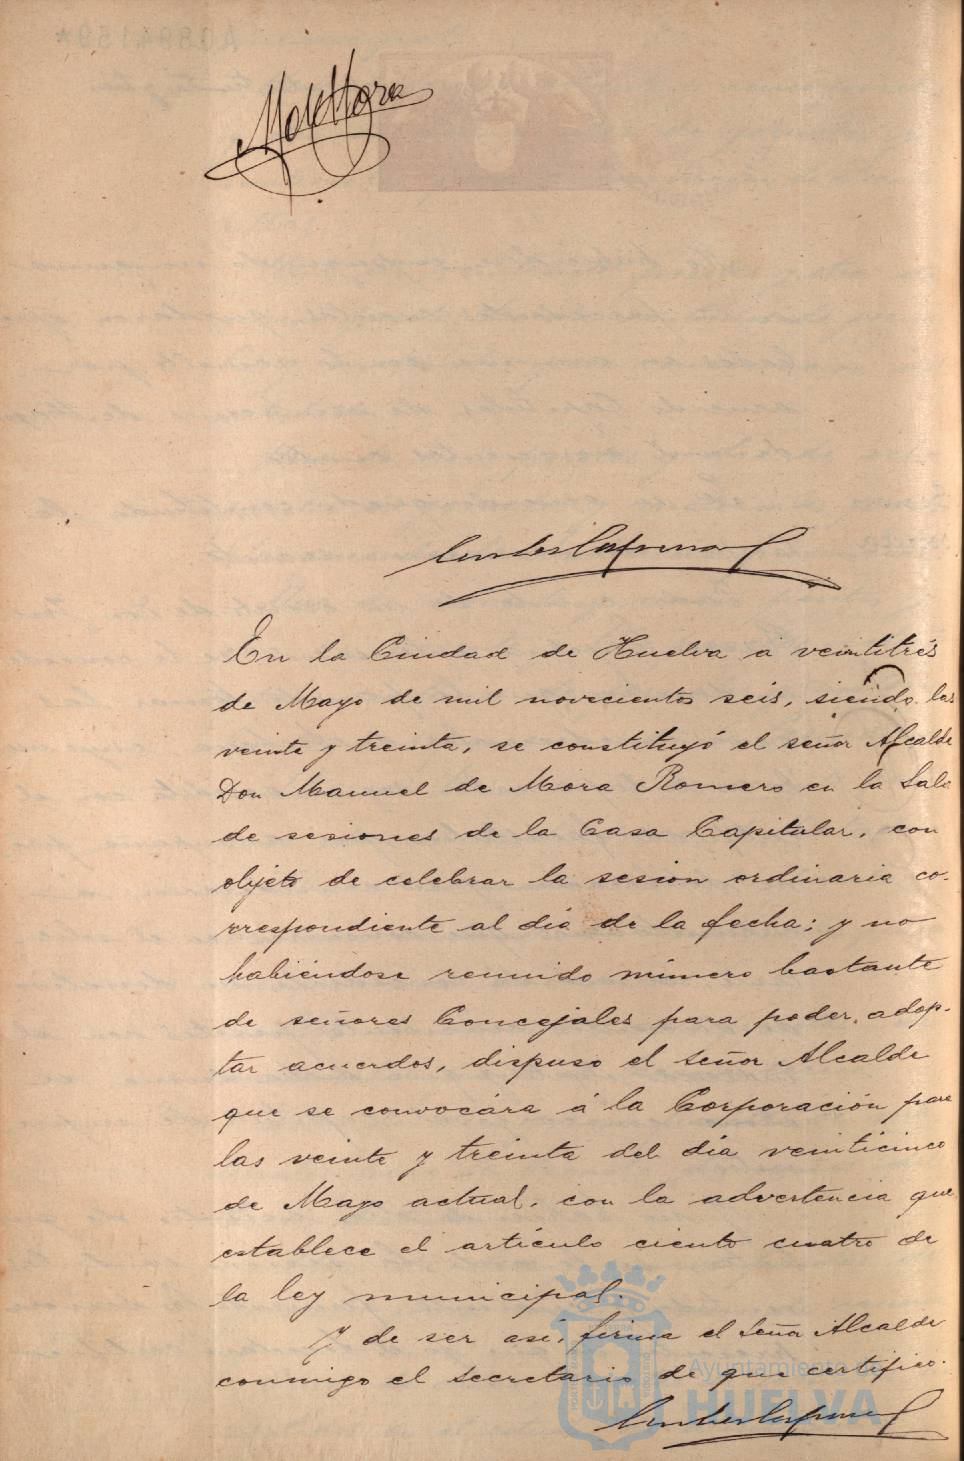 A0894159*
M de Mora
En la Ciudad de Huelva a veintitrés
de Mayo de mil novecientos seis, siendo las
veinte y treinta, se constituyó el señor Alcalde
Don Manuel de Mora Romero en la Sala
de sesiones de la Casa Capitular, con
objeto de celebrar la sesion ordinaria co-
rrespondiente al dia de la fecha; y no
habiéndose reunido número bastante
de señores Concejales para poder adop-
tar acuerdos, dispuso el señor Alcalde
que se convocára á la Corporación para
las veinte y treinta del dia veinticinco
de Mayo actual, con la advertencia que
establece el artículo ciento cuatro de
la ley municipal.
Y de ser asi, firma el Señor Alcalde
conmigo el secretario de que certifico.
Ayuntamiento
HUELVA